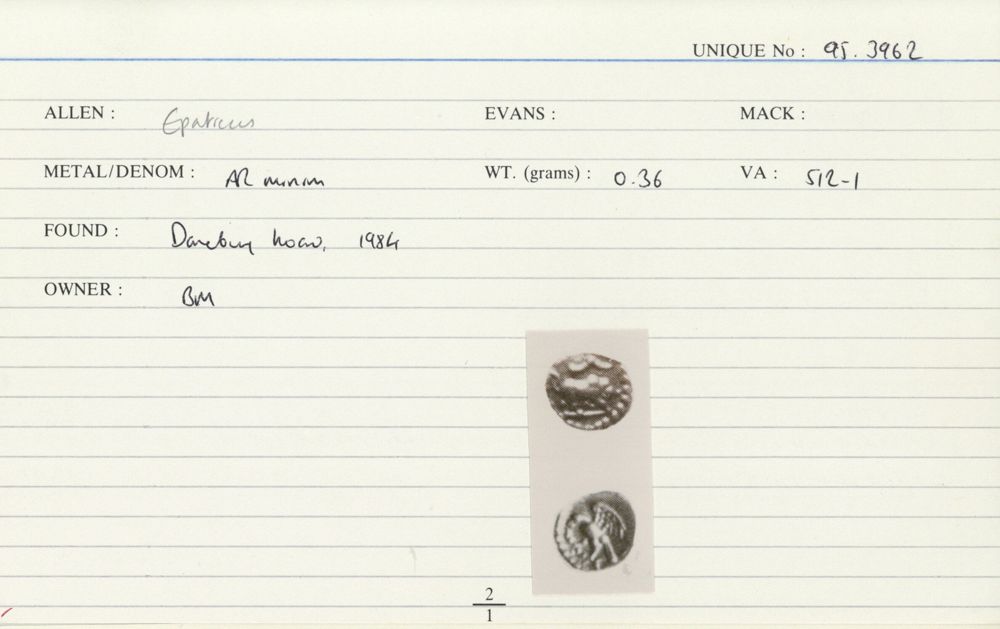 UNIQUE No : 95.3962
ALLEN : Epaticcus EVANS : MACK :
METAL/DENOM : AR minim WT. (grams) : 0.36 VA : 512-1
FOUND : Danebury hoard, 1984
OWNER : BM
2
1